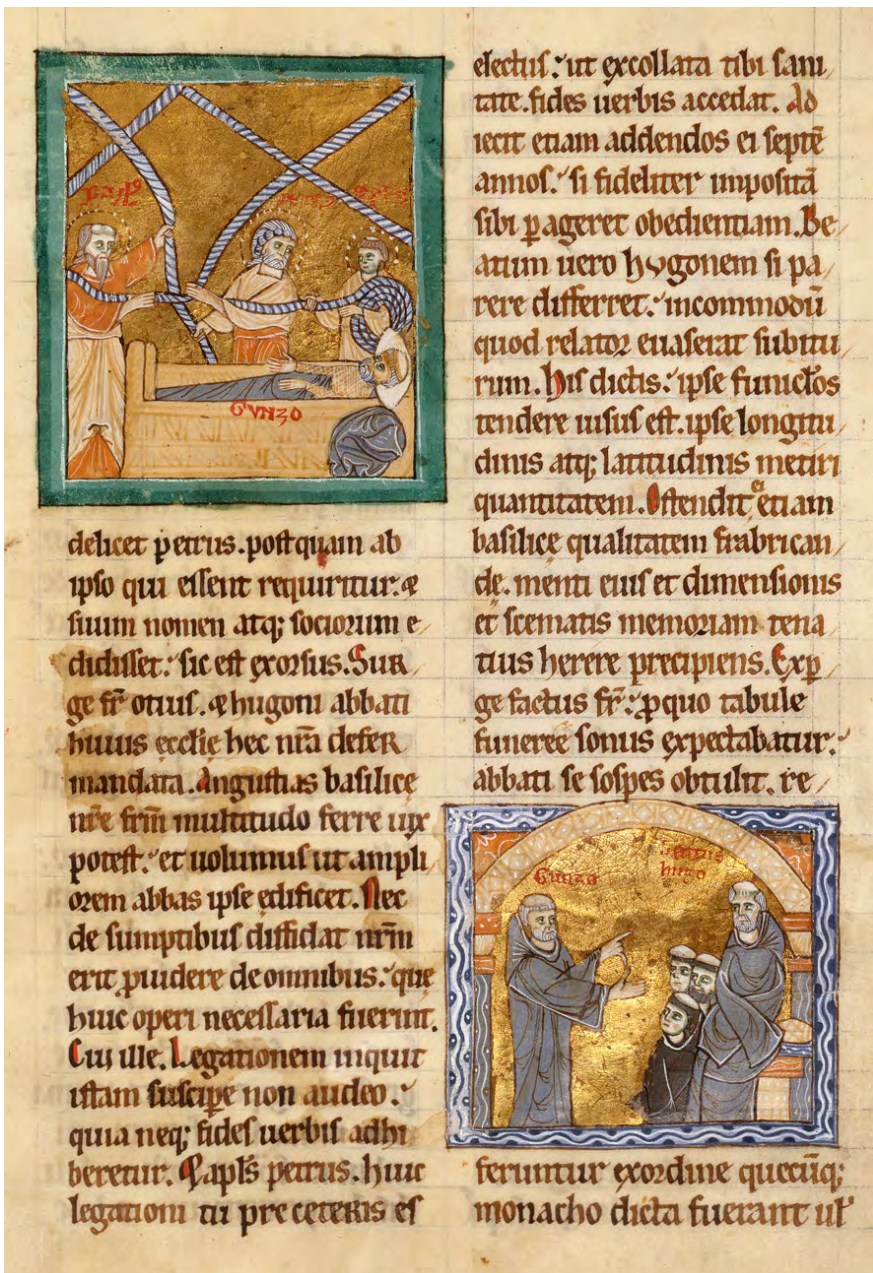 GVNZO
delicet petrus. postquam ab
ipso qui essent requiritur. &
suum nomen atq; sociorum e
didisset: sic est exorsus. Sur
ge fr̄ otius. & hugoni abbati
huius ecclie hec nr̄a defer
mandata. Angustias basilice
nr̄e fr̄m multitudo ferre uix
potest. et uolumus ut ampli
orem abbas ipse edificet. Nec
de sumptibus diffidat nr̄m
erit puidere de omnibus. que
huic operi necessaria fuerint.
Cui ille. Legationem inquit
istam suscipe non audeo.
quia neq; fides uerbis adhi
beretur. & apl̄s petrus. huic
legationi tu pre ceteris es
electus: ut excollata tibi sani
tate. fides uerbis accedat. Ad
iecit etiam addendos ei septē
annos. si fideliter impositā
sibi pageret obedientiam. Be
atum uero hugonem si pa
rere differret. incommodū
quod relator euaserat subitu
rum. His dictis. ipse funiclos
tendere uisus est. ipse longitu
dinis atq; latitudinis metiri
quantitatem. Ostendit ei etiam
basilicę qualitatem frabrican
dę. menti eius et dimensionis
et scematis memoriam tena
tius herere precipiens. Exp
ge factus fr̄. pquo tabule
funeree sonus expectabatur.
abbati se sospes obtulit. re
Gunzo
hugo
feruntur exordine quecūq;
monacho dicta fuerant ul̄